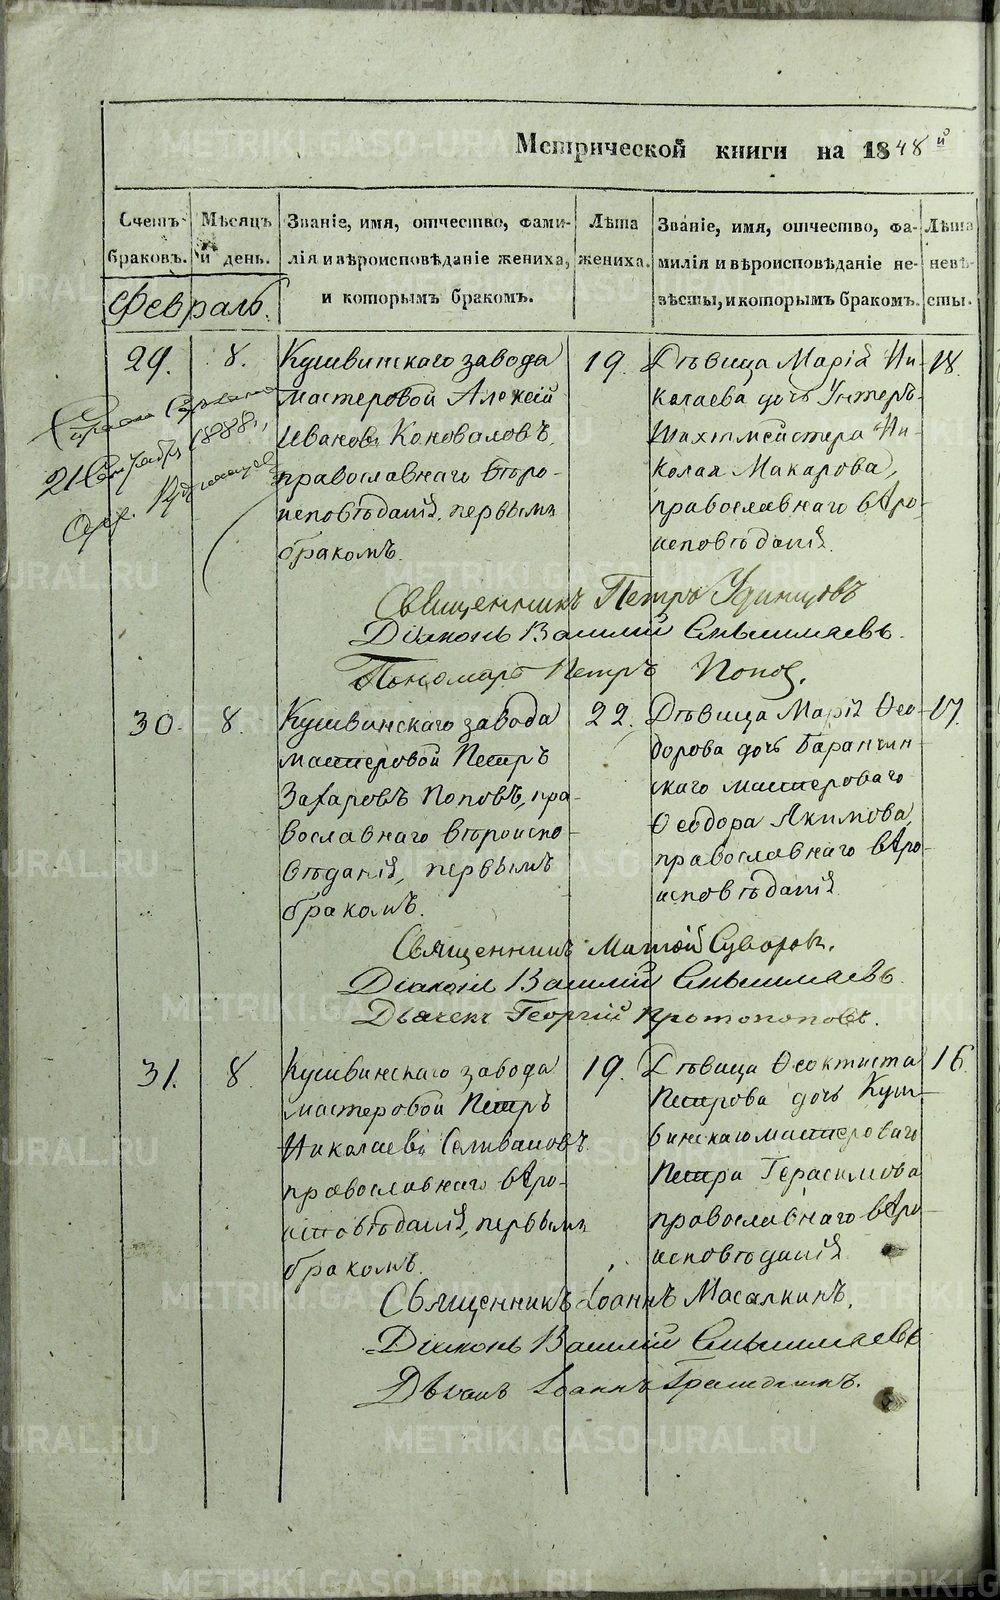 Метрической книги на 1848й
Счетъ браковъ.
Мѣсяцъ и день.
Званіе, имя, отчество, фами-
лія и вѣроисповѣданіе жениха,
и которымъ бракомъ.
Лѣта
жениха.
Званіе, имя, отчество, фа-
милія и вѣроисповѣданіе не-
вѣсты, и которымъ бракомъ.
Лѣта
невѣ-
сты.
Февраль.
29.
8.
Кушвинскаго завода
мастеровой Алексій
Ивановъ Коноваловъ,
православнаго вѣро-
исповѣданія, первымъ
бракомъ.
19.
Дѣвица Марія Ни-
колаева дочь Унтеръ-
Шихтмейстера Ни-
колая Макарова,
православнаго вѣро-
исповѣданія.
18.
21 1888
Священникъ Петръ Удинцовъ
Діаконъ Василій
Пономарь Петръ Попов.
30.
8.
Кушвинскаго завода
мастеровой Петръ
Захаровъ Поповъ, пра-
вославнаго вѣроиспо-
вѣданія, первымъ
бракомъ.
22.
Дѣвица Марія Ѳео-
дорова дочь Баранчин-
скаго мастероваго
Ѳеодора Якимова,
православнаго вѣро-
исповѣданія.
17.
Священникъ Матѳій Суворовъ.
Діаконъ Василій
Дьячекъ Георгій Протопоповъ.
31.
8.
Кушвинскаго завода
мастеровой Петръ
Николаевъ Селивановъ
православнаго вѣро-
исповѣданія, первымъ
бракомъ.
19.
Дѣвица Ѳеоктиста
Петрова дочь Куш-
винскаго мастероваго
Петра Герасимова
православнаго вѣро-
исповѣданія
16.
Священникъ Іоаннъ Масалкинъ.
Діаконъ Василій
Іоаннъ
METRIKI.GASO-URAL.RU